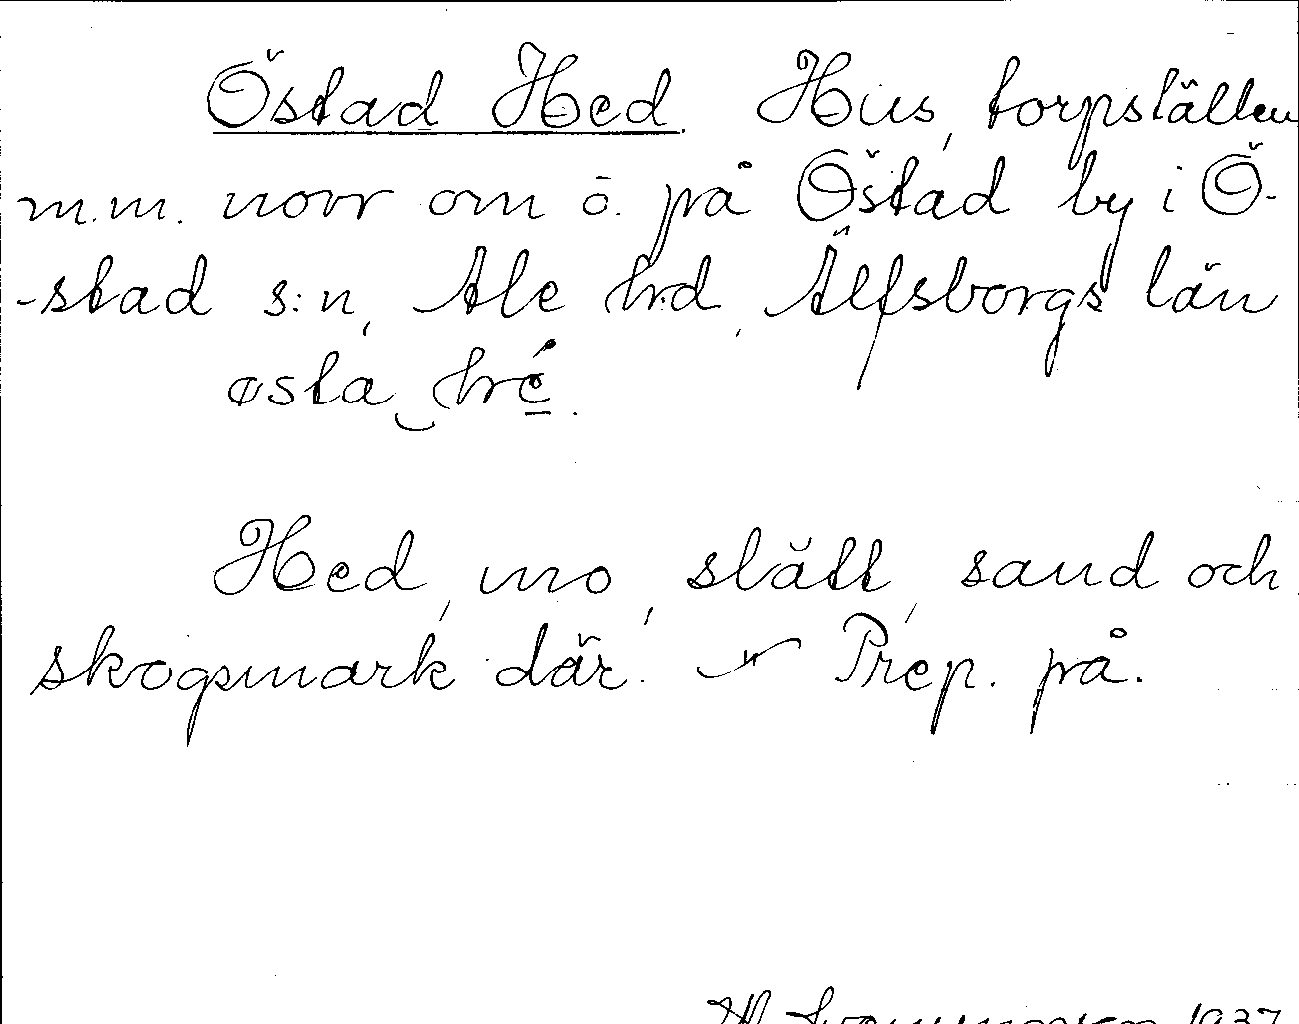 Östad Hed. Hus, torpställen
m.m. norr om o. på Östad by i Ö-
-stad s:n, Ale hd, Älfsborgs län
østa‿hré̲.
Hed, mo, slätt, sand och
skogsmark där. Prep. på.
1937